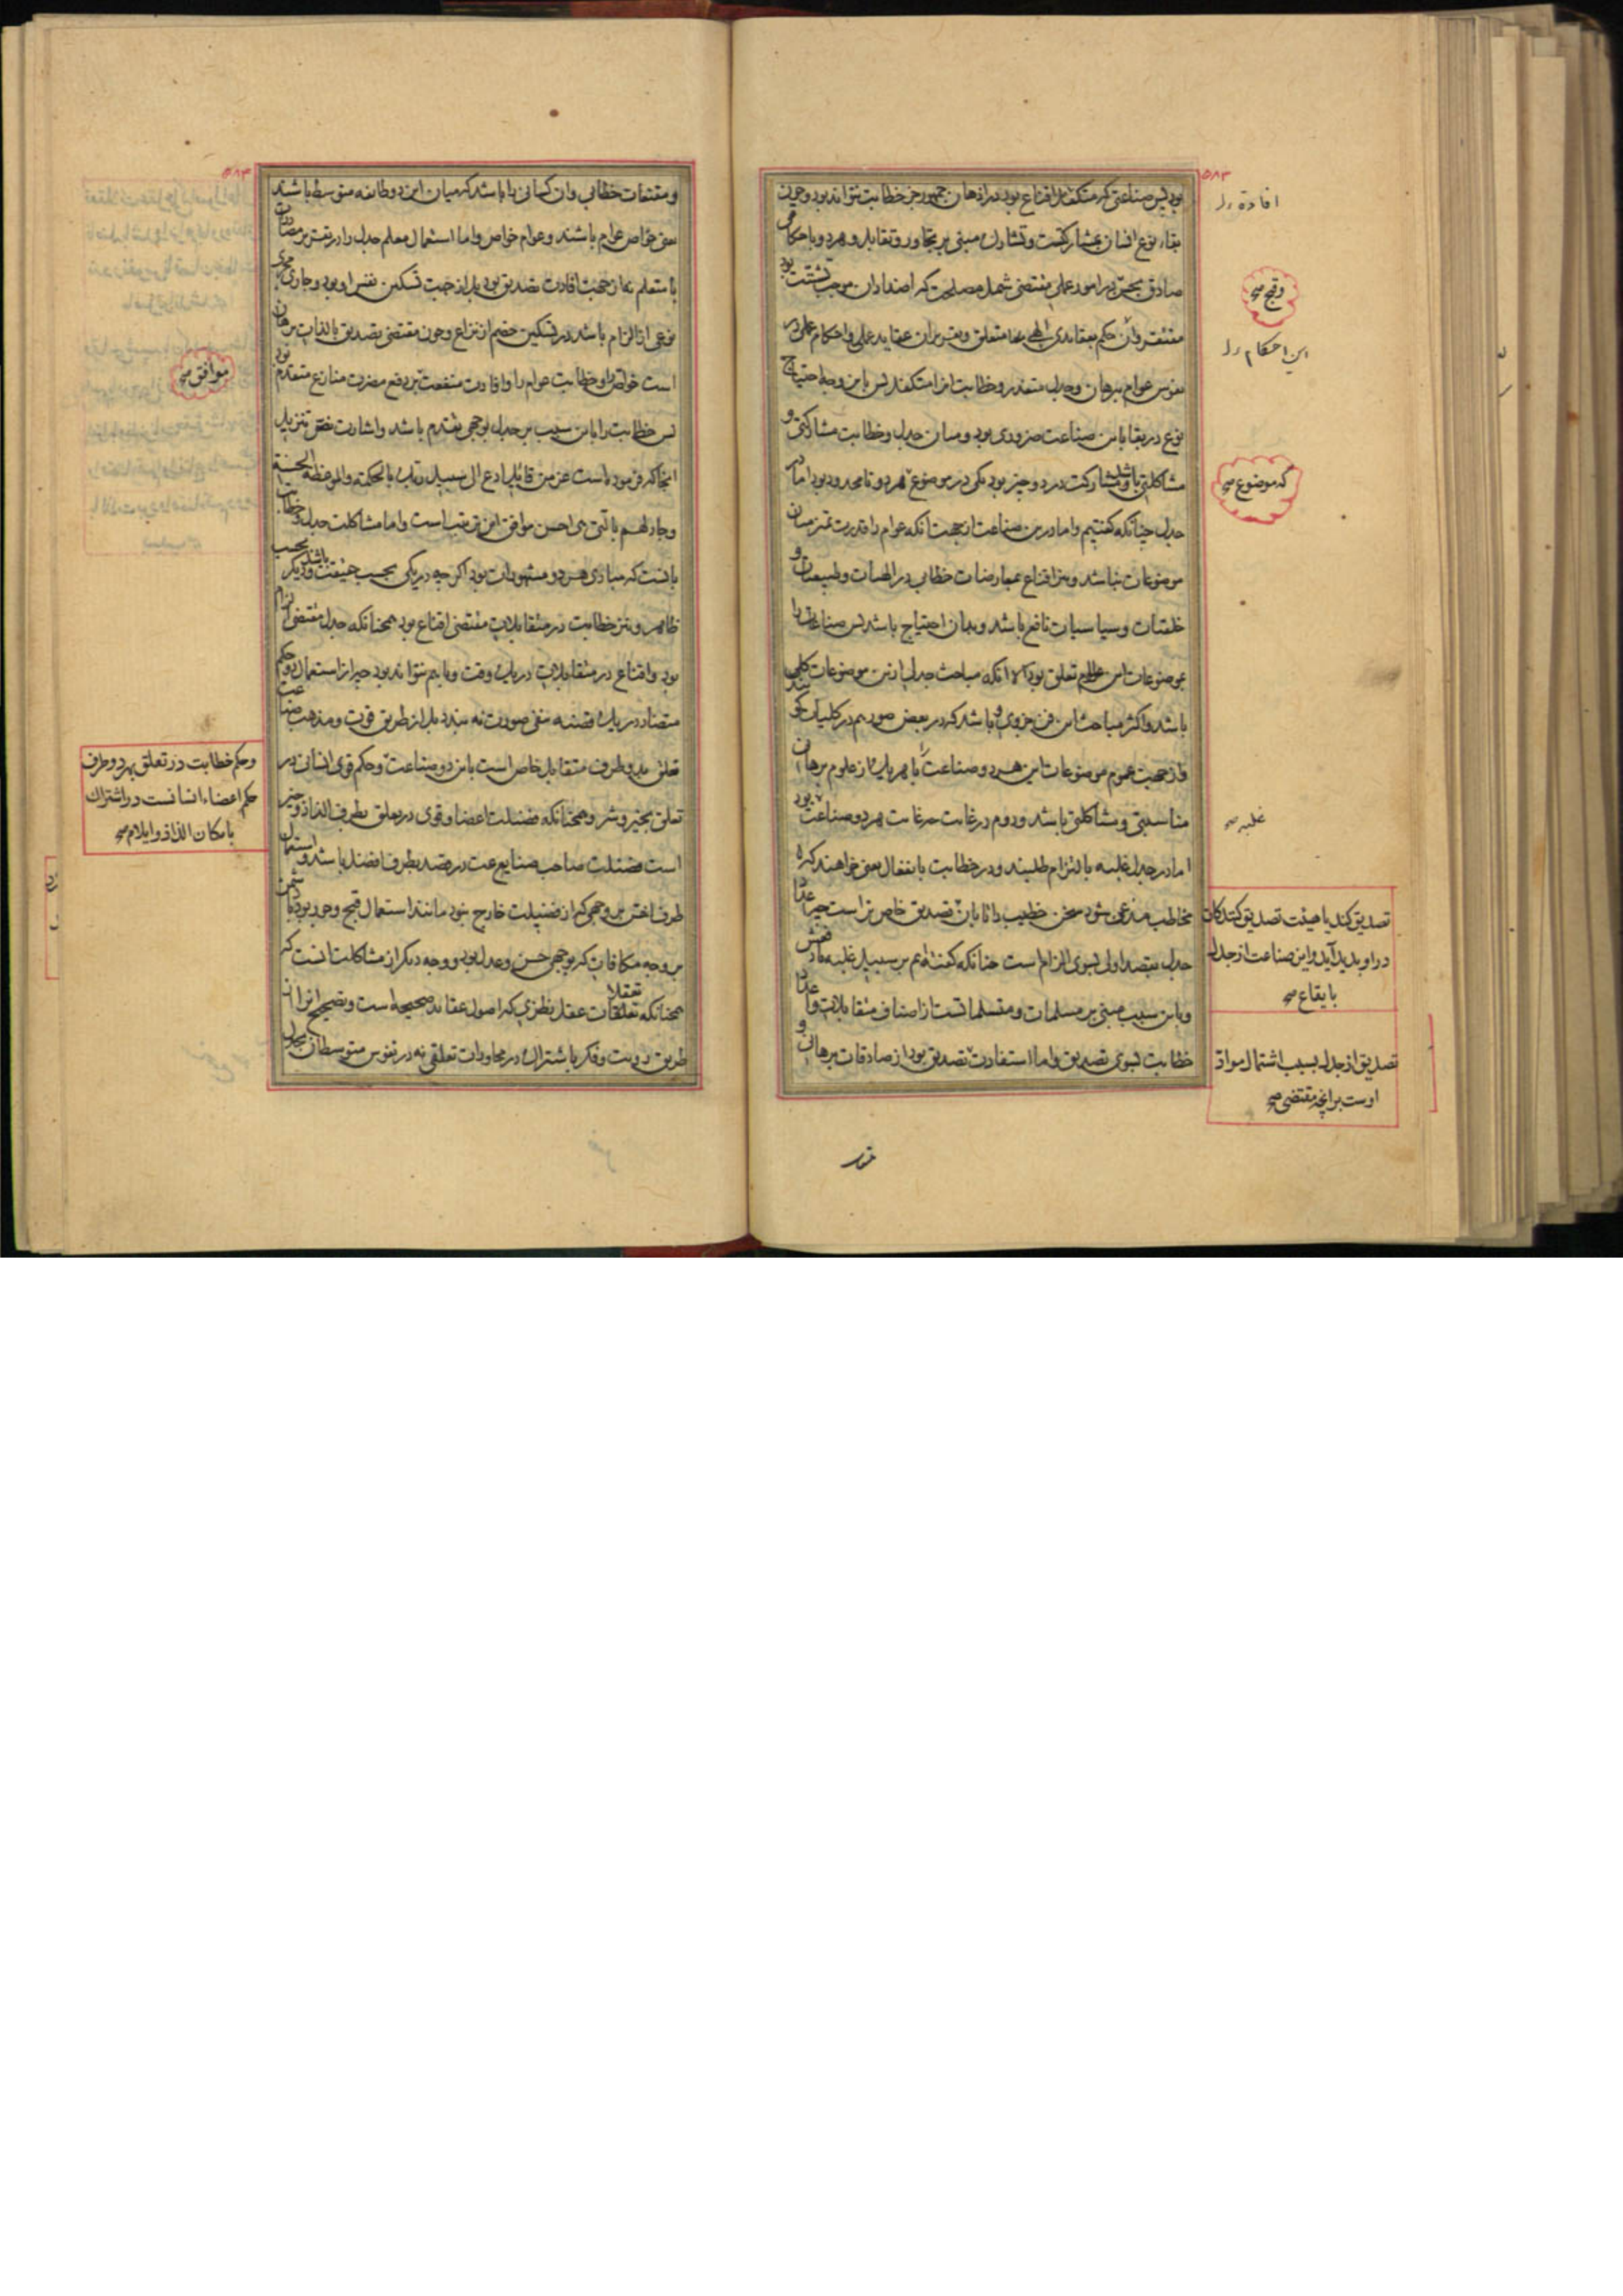 ۵۸۳
بود پس صناعتی که متکفل اقناع بود در اذهان جمهور جز خطابت نتواند بود و چون
بقاء نوع انسان بمشارکتست و تشارک مبنی بر تجاور و تقابل و هر دو باحکامی
صادق بحسن در امور عملی مقتضی شمل مصلحت که اضداد آن موجب تشتت بود
مفتقر و آن حکم بعقایدی الهی متعلق و تقریر آن عقاید علمی و احکام عملی در
نفوس عوام ببرهان و جدل متعذر و خطابت آنرا متکفل پس باین وجه احتیاج
نوع در بقا باین صناعت ضروری بود و میان جدل و خطابت مشارکتی و
مشاکلتی باشد مشارکت در دو چیز بود یکی در موضوع هر دو نامحدود بود اما در
جدل چنانکه گفتیم و اما درین صناعت از جهت آنکه عوام را قدرت تمیز میان
موضوعات نباشد و نیز اقناع بمعارضات خطابی در الهیات و طبیعیات و
خلقیات و سیاسیات نافع باشد و بدان احتیاج باشد پس صناعت را
بموضوعات این علوم تعلق بود الا آنکه مباحث جدلی ازین موضوعات کلی
باشد و اکثر مباحث این فن جزوی باشد که در بعض صور هم در کلیات گوید
و از جهت عموم موضوعات این هر دو صناعت با هر یک از علوم برهان
مناسبتی و مشاکلتی باشد و دوم در غایت چه غایت هر دو صناعت بود
اما در جدل غلبه بالتزام طلبند و در خطابت بانفعال یعنی خواهند که
مخاطب مذعن شود سخن خطیب را تا بآن تصدیق خاص تر است چه
جدل بقصد اولی بسوی الزام است چنانکه گفته ایم بر سبیل غلبه
و باین سبب مبنی بر مسلمات و متسلماتست از اصناف متقابلات و
خطابت بسوی تصدیق و اما استفادت تصدیق بود از صادقات برهانی و
افادة
وقبح صح
این احکام
که موضوع صح
غلبه صح
تصدیق کند یا هیئت تصدیق کنندگان
در او پدید آید و این صناعت از جدل
بایقاع صح
تصدیق از جدل بسبب اشتمال مواد
اوست بر آنچه مقتضی صح
۵۸۴
و مقنعات خطابی و آن کسانی را باشد که میان این دو طائفه متوسط باشند
یعنی خواص عوام باشند و عوام خواص و اما استعمال معلم جدل را در تقریر مصادرات
با متعلم نه از جهت افادت تصدیق بود بل از جهت تسکین نفس او بود و جاری مجری
نوعی از الزام باشد در تسکین خصم از نزاع و چون مقتضی تصدیق بالذات برهان
است خواص را و خطابت عوام را و افادت منفعت بر دفع مضرت منازع متقدم بود
پس خطابت را باین سبب بر جدل بوجهی تقدم باشد و اشارت نص تنزیل
آنجا که فرموده است عز من قائل ادع الی سبیل ربک بالحکمة والموعظة الحسنة
وجادلهم بالتی هی احسن موافق این ترتیب است و اما مشاکلت جدل و خطابت
بآنست که مبادی هر دو مشهورات بود اگر چه در یکی بحسب حقیقت باشد و دیگر بحسب
ظاهر و نیز خطابت در متقابلات مقتضی اقناع بود همچنانکه جدل مقتضی الزام
بود و اقناع در متقابلات در یک وقت و باهم نتواند بود چه از استعمال دو حکم
متضاد در یک قضیه منفی صورت نه بندد بل از طریق قوت و مذهب صناعت
تعلق بدو طرف متقابل خاص است باین دو صناعت و حکم قوی انسانی در
تعلق بخیر و شر و همچنانکه فضیلت اعضا و قوی در تعلق بطرف الذاذ و خیر
است فضیلت صاحب صنایع عت در قصد بطرف افضل باشد و استعمال
طرف اخس بر وجهی که از فضیلت خارج نبود مانند استعمال قبح و جور بود با دشمن
بر وجه مکافات که بوجهی حسن و عدل بود و وجه دیگر از مشاکلت آنست که
همچنانکه تعلقات تعقلات عقل نظری که اصول عقاید صحیحه است و تصحیح آنرا از
طریق رویت و فکر باشتراک در محاورات تعلقی نه در نفوس متوسطان بجدل
موافق صح
و حکم خطابت در تعلق بهر دو طرف
حکم اعضاء انسانست در اشتراک
بامکان الذاذ و ایلام صح